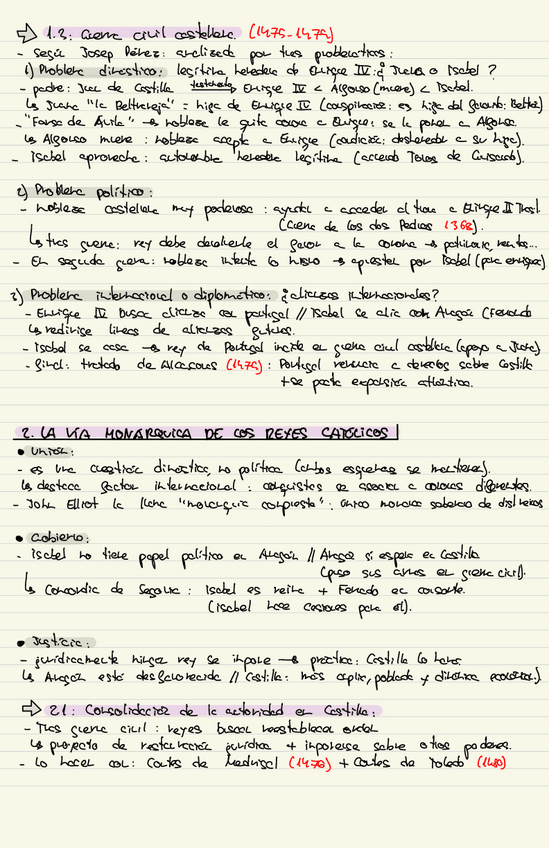 ⇒ 1.3: Guerra civil castellana. (1475-1479)
- Según Josep Pérez: analizada por tres problemáticas:
1) Problema dinástico: legítima heredera de Enrique IV: ¿Juana o Isabel?
- padre: Juan de Castilla Enrique IV < Alfonso (muere) < Isabel.
↳ Juana "la Beltraneja" = hija de Enrique IV (conspiración: es hija del favorito: Beltrán)
- "Farsa de Ávila" → nobleza le quita corona a Enrique: se la ponen a Alfonso.
↳ Alfonso muere: nobleza acepta a Enrique (condición: desheredar a su hija).
- Isabel aprovecha: autonombra heredera legítima (acuerdo Toros de Guisando).
2) Problema político:
- nobleza castellana muy poderosa: ayuda a acceder al trono a Enrique II Trast.
(Guerra de los dos Pedros 1366).
↳ tras guerra: rey debe devolverle el favor a la corona → patrimonio, rentas...
- En segunda guerra: nobleza intenta lo mismo → apuestan por Isabel (para enriquec)
3) Problema internacional o diplomático: ¿alianzas internacionales?
- Enrique IV busca alianza con portugal // Isabel se alía con Aragón (Fernando
↳ redirige líneas de alianzas futuras.
- Isabel se casa → rey de Portugal incide en guerra civil castellana (apoyo a Juana).
- Final: tratado de Alcaçovas (1479): Portugal renuncia a derechos sobre Castilla
+ se pacta expansión atlántica.
2. LA VÍA MONÁRQUICA DE LOS REYES CATÓLICOS
• Unión:
- es una cuestión dinástica, no política (ambos esquemas se mantienen).
↳ destaca factor internacional: conquistas se asocian a coronas diferentes.
- John Elliot la llama "monarquía compuesta": único monarca soberano de dist reinos
• Gobierno:
- Isabel no tiene papel político en Aragón // Aragón sí espera en Castilla
(puso sus armas en guerra civil).
↳ Concordia de Segovia: Isabel es reina + Fernando es consorte.
(Isabel hace cesiones para él).
• Justicia:
- jurídicamente ningún rey se impone → práctica: Castilla lo hará.
↳ Aragón está desfavorecida // Castilla: más amplia, poblada y dinámica económ.).
⇒ 2.1: Consolidación de la autoridad en Castilla:
- Tras guerra civil: reyes buscan reestablecer orden
↳ proyecto de restauración jurídica + imponerse sobre otros poderes.
- lo hacen con: Cortes de Madrigal (1476) + Cortes de Toledo (1480)